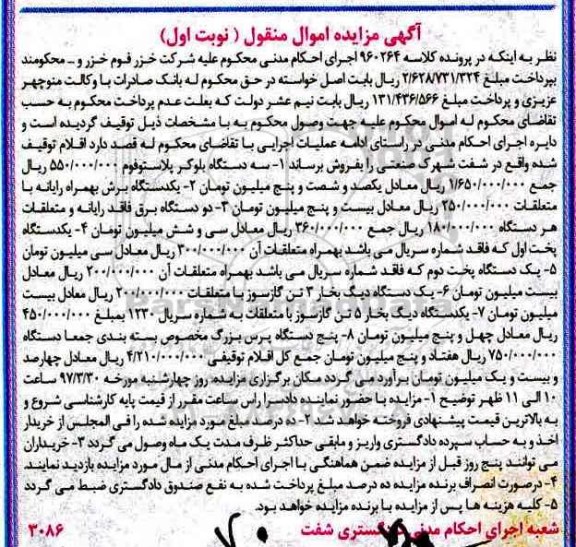 آگهی مزایده اموال منقول ( نوبت اول)
نظر به اینکه در پرونده کلاسه ۹۶۰۲۶۴ اجرای احکام مدنی محکوم علیه شرکت خزر فوم خزر و ـ محکومند
بپرداخت مبلغ ۲/۶۲۸/۷۳۱/۳۲۴ ریال بابت اصل خواسته در حق محکوم له بانک صادرات با وکالت منوچهر
عزیزی و پرداخت مبلغ ۱۳۱/۴۳۶/۵۶۶ ریال بابت نیم عشر دولت که بعلت عدم پرداخت محکوم به حسب
تقاضای محکوم له اموال محکوم علیه جهت وصول محکوم به با مشخصات ذیل توقیف گردیده است و
دایره اجرای احکام مدنی در راستای ادامه عملیات اجرایی با تقاضای محکوم له قصد دارد اقلام توقیف
شده واقع در شفت شهرک صنعتی را بفروش برساند ۱- سه دستگاه بلوکر پلاستوفوم ۵۵۰/۰۰۰/۰۰۰ ریال
جمع ۱/۶۵۰/۰۰۰/۰۰۰ ریال معادل یکصد و شصت و پنج میلیون تومان ۲- یکدستگاه برش بهمراه رایانه با
متعلقات ۲۵۰/۰۰۰/۰۰۰ ریال معادل بیست و پنج میلیون تومان ۳- دو دستگاه برق فاقد رایانه و متعلقات
هر دستگاه ۱۸۰/۰۰۰/۰۰۰ ریال جمع ۳۶۰/۰۰۰/۰۰۰ ریال معادل سی و شش میلیون تومان ۴- یکدستگاه
پخت اول که فاقد شماره سریال می باشد بهمراه متعلقات آن ۳۰۰/۰۰۰/۰۰۰ ریال معادل سی میلیون تومان
۵- یک دستگاه پخت دوم که فاقد شماره سریال می باشد بهمراه متعلقات آن ۲۰۰/۰۰۰/۰۰۰ ریال معادل
بیست میلیون تومان ۶- یک دستگاه دیگ بخار ۳ تن گازسوز با متعلقات ۲۰۰/۰۰۰/۰۰۰ ریال معادل بیست
میلیون تومان ۷- یکدستگاه دیگ بخار ۵ تن گازسوز با متعلقات به شماره سریال ۱۲۳۰ بمبلغ ۴۵۰/۰۰۰/۰۰۰
ریال معادل چهل و پنج میلیون تومان ۸- پنج دستگاه پرس بزرگ مخصوص بسته بندی جمعا دستگاه
۷۵۰/۰۰۰/۰۰۰ ریال هفتاد و پنج میلیون تومان جمع کل اقلام توقیفی ۴/۲۱۰/۰۰۰/۰۰۰ ریال معادل چهارصد
و بیست و یک میلیون تومان برآورد می گردد مکان برگزاری مزایده، روز چهارشنبه مورخه ۹۷/۳/۳۰ ساعت
۱۰ الی ۱۱ ظهر توضیح ۱- مزایده با حضور نماینده دادسرا راس ساعت مقرر از قیمت پایه کارشناسی شروع و
به بالاترین قیمت پیشنهادی فروخته خواهد شد ۲- ده درصد مبلغ مورد مزایده شده را فی المجلس از خریدار
اخذ و به حساب سپرده دادگستری واریز و مابقی حداکثر ظرف مدت یک ماه وصول می گردد ۳- خریداران
می توانند پنج روز قبل از مزایده ضمن هماهنگی با اجرای احکام مدنی از مال مورد مزایده بازدید نمایند.
۴- درصورت انصراف برنده مزایده ده درصد مبلغ پرداخت شده به نفع صندوق دادگستری ضبط می گردد
۵- کلیه هزینه ها پس از مزایده با برنده مزایده خواهد بود.
شعبه اجرای احکام مدنی دادگستری شفت ۳۰۸۶